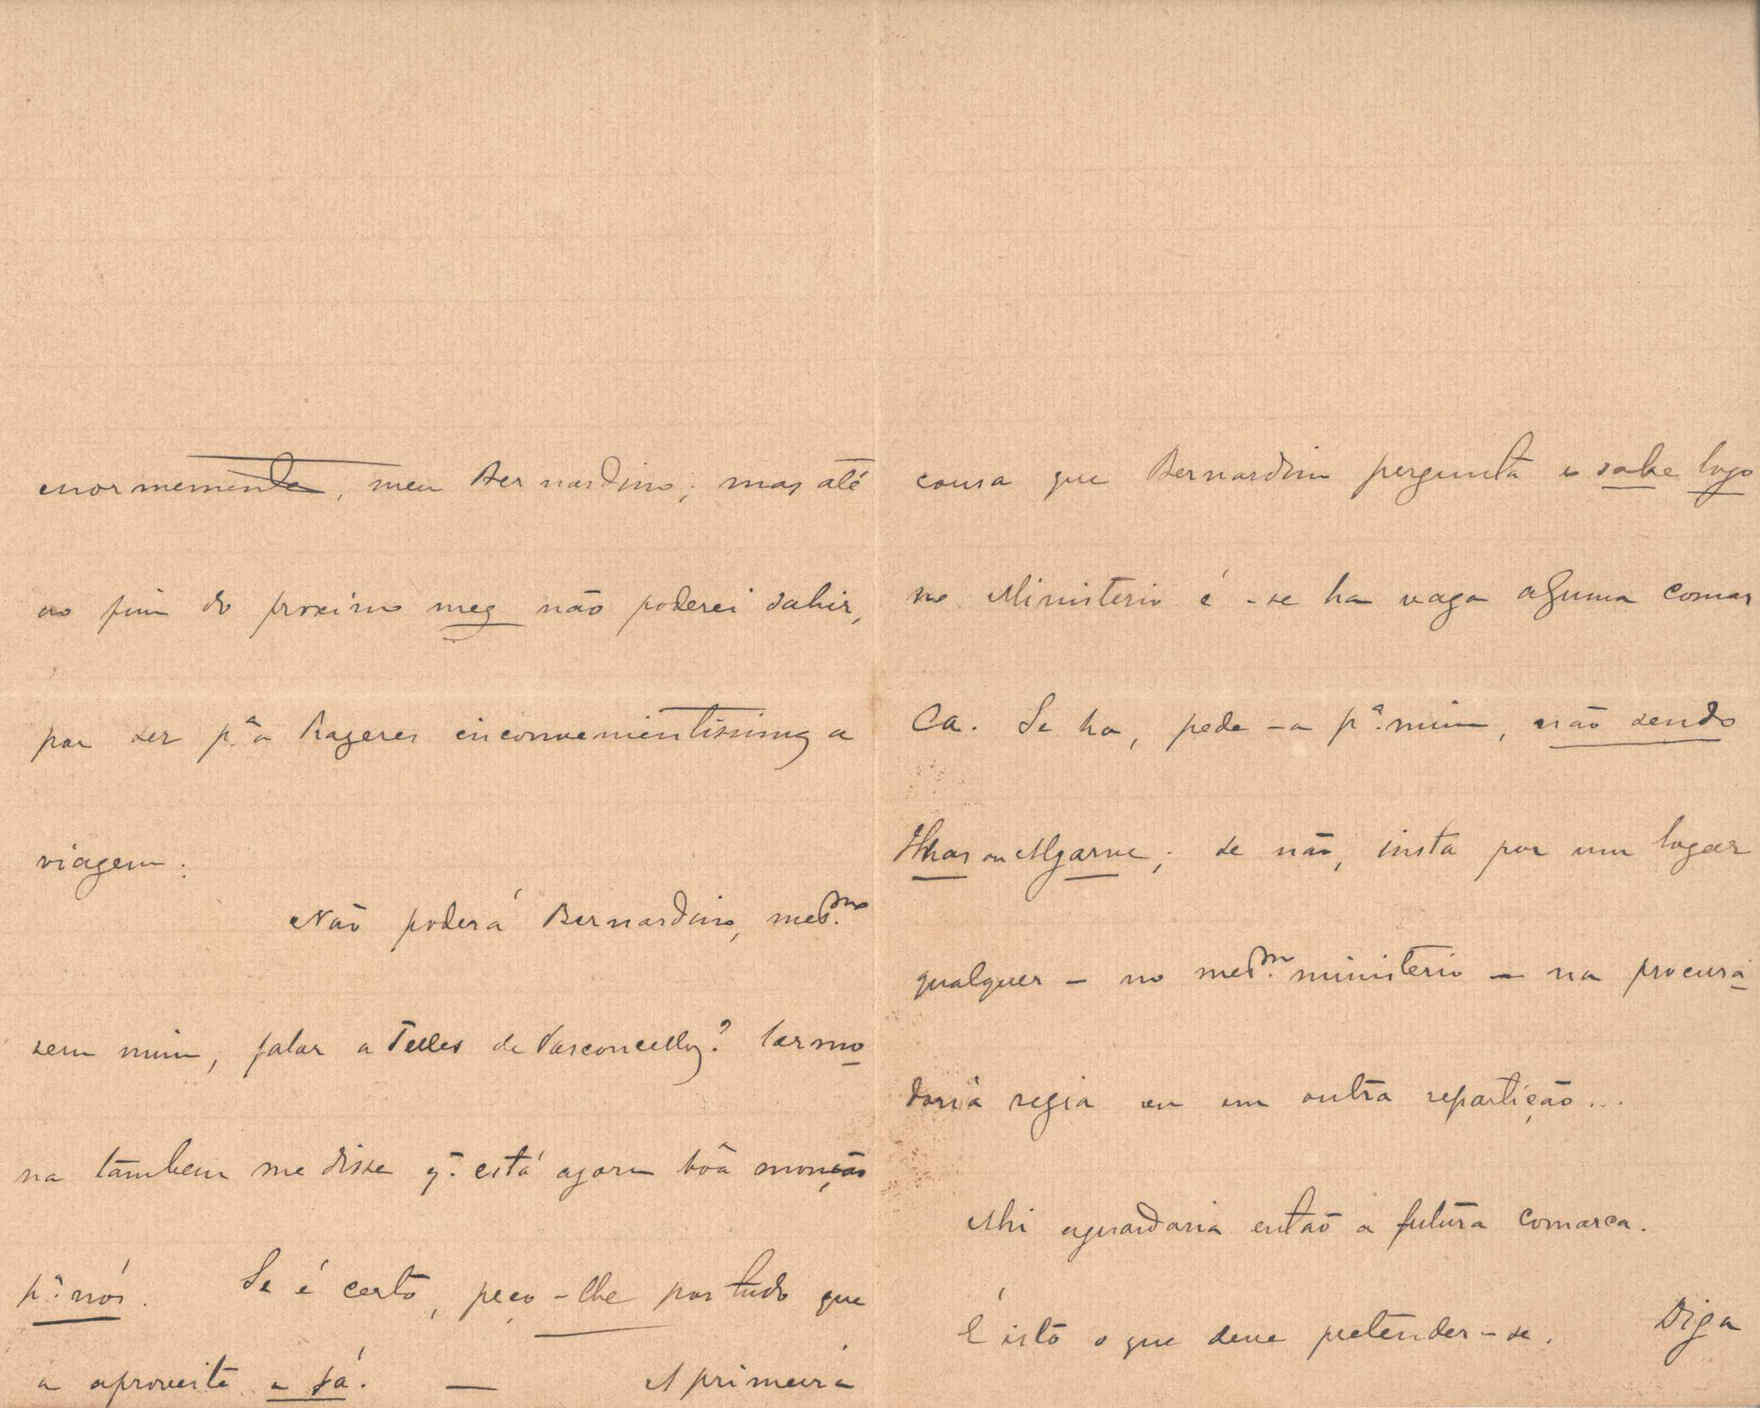 enormemente, meu Bernardino; mas até
ao fim do proximo mez não poderei sahir,
por ser p.ª a Prazeres inconvenientissima a
viagem.
Não poderá Bernardino, mes.mo
sem mim, falar a Telles de Vasconcellos? Carmo
na tambem me disse q. está agora bôa monção
p.ª nós. Se é certo, peço-lhe por tudo que
a aproveite e já. — A primeira
cousa que Bernardino pergunta e sabe logo
no Ministerio é - se ha vaga alguma comar
ca. Se ha, pede-a p.ª mim, não sendo
Ilhas ou Algarve; se não, insta por um logar
qualquer — no mes.mo ministerio — na procura
doria regia ou em outra repartição...
Ahi aguardaria então a futura comarca.
É isto o que deve pretender-se. Diga